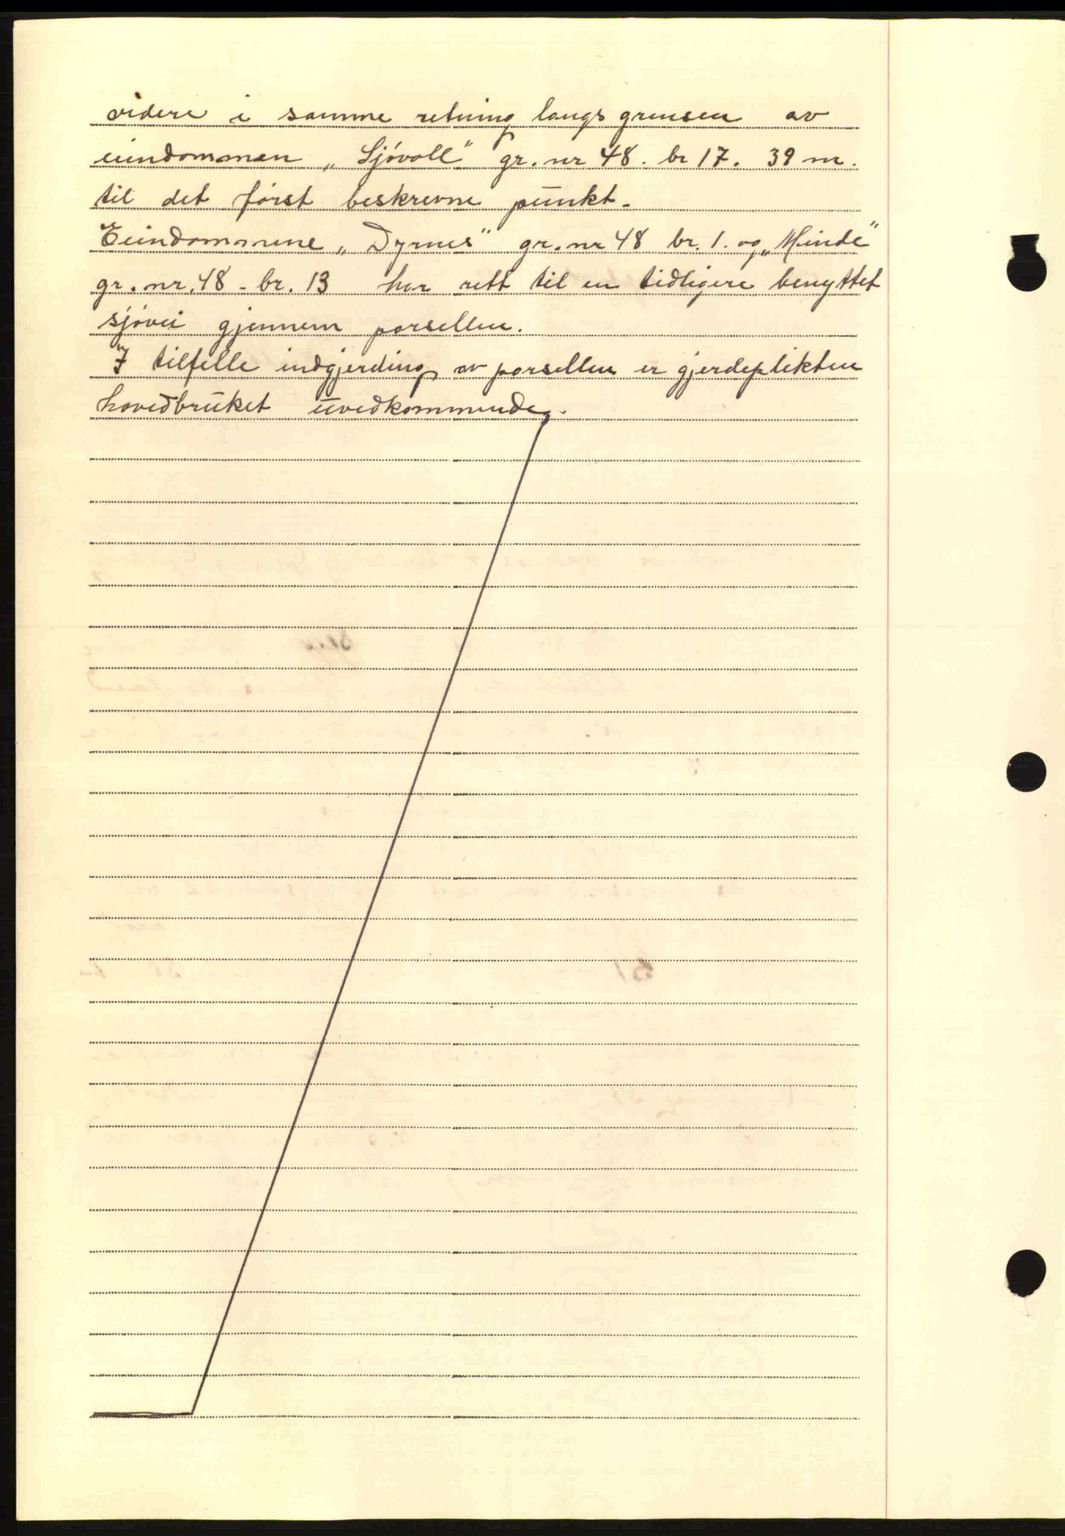 videre i samme retning langs grensen av
eiendommen „Sjøvoll" gr. nr 48. br 17. 39 m.
til det først beskrevne punkt.
Eiendommene „Dyrnes" gr. nr 48 br. 1. og „Minde"
gr. nr. 48 - br. 13 har rett til en tidligere benyttet
sjøvei gjennem parsellen.
I tilfelle indgjerding av parsellen er gjerdeplikten
hovedbruket uvedkommende.